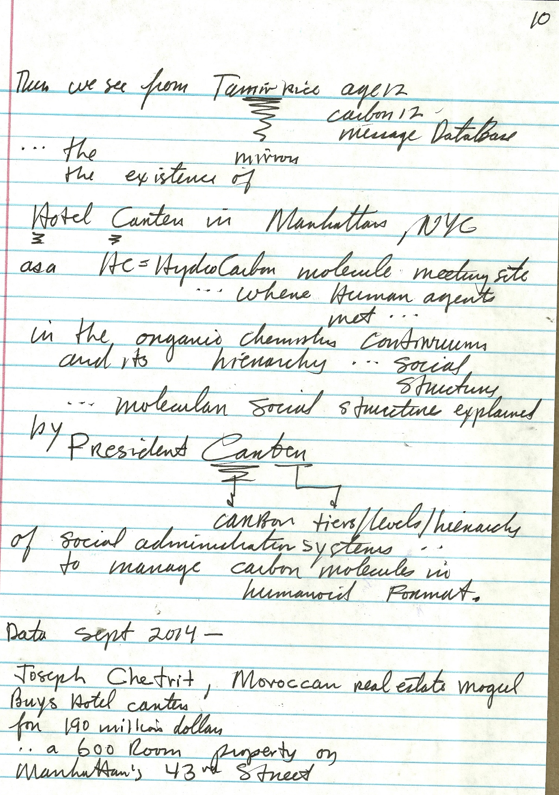 10
Then we see from Tamir Rice age 12
carbon 12
message DataBase
... the mirror
the existence of
Hotel Carter in Manhattan, NYC
as a HC = HydroCarbon molecule meeting site
... where Human agents
met ...
in the organic chemistus continuums
and its hierarchy ... social
structure
... molecular social structure explained
by President Carter
carbon tiers/levels/hierarchy
of social administrator systems ...
to manage carbon molecules in
humanoid format.
Data Sept 2014 —
Joseph Chetrit, Moroccan real estate mogul
Buys Hotel Carter
for 190 million dollars
... a 600 Room property on
Manhattan's 43rd Street